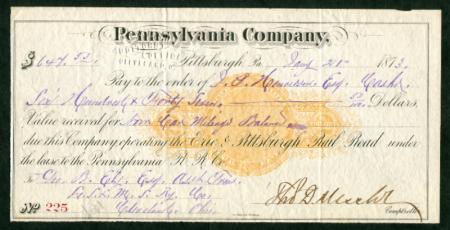 Pennsylvania Company,
$ 647. 52 Pittsburgh Pa. Jany 21st 1873.
Pay to the order of Esq. Cashr
Six Hundred & Forty Seven Dollars,
Value received for Car Mileage Balance
due this Company operating the Erie & Pittsburgh Rail Road under
the lease to the Pennsylvania R. R. Co.
To Geo. B. Ely Esq. Asst Treas.
L. S. & M. S. Ry. Co. Thos D. Comptroller
No 225 Cleveland, Ohio.